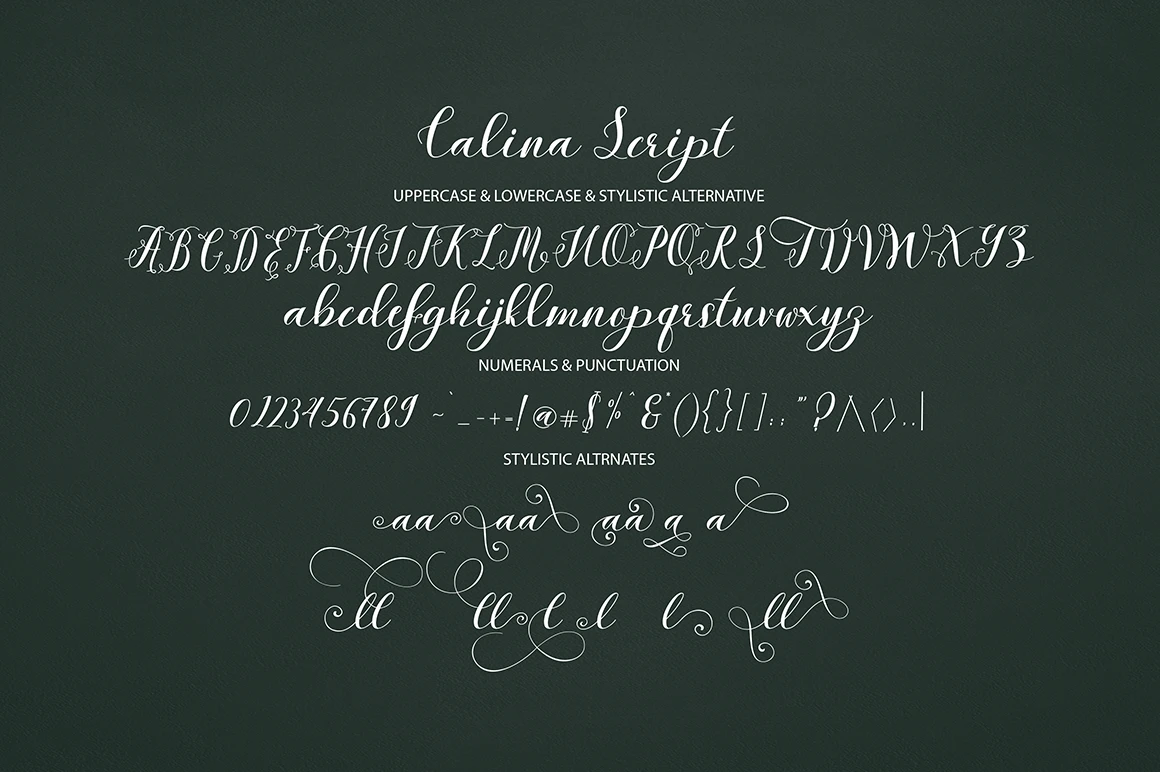 Calina Script
UPPERCASE & LOWERCASE & STYLISTIC ALTERNATIVE
ABCDEFGHIJKLMNOPQRSTUVWXYZ
abcdefghijklmnopqrstuvwxyz
NUMERALS & PUNCTUATION
0123456789 ~`_-+=!@#$%^&*(){}[]:;"'?/\<>,.|
STYLISTIC ALTRNATES
aa aa aa a a
ll ll l l l ll